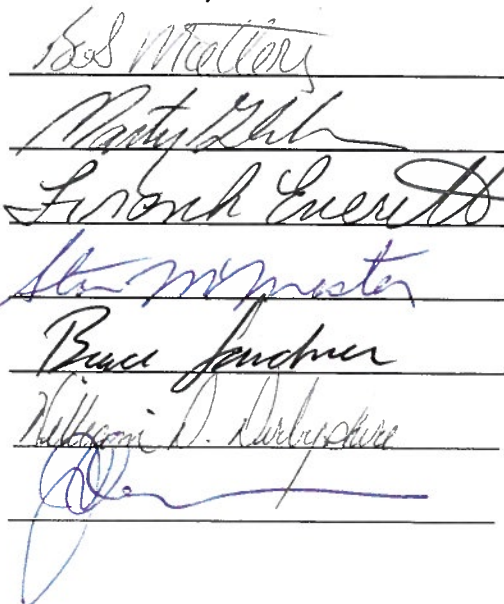 Bob Metters
Marty
Frank Everett
Stan McMaster
Bruce Gardner
William D. Derbyshire